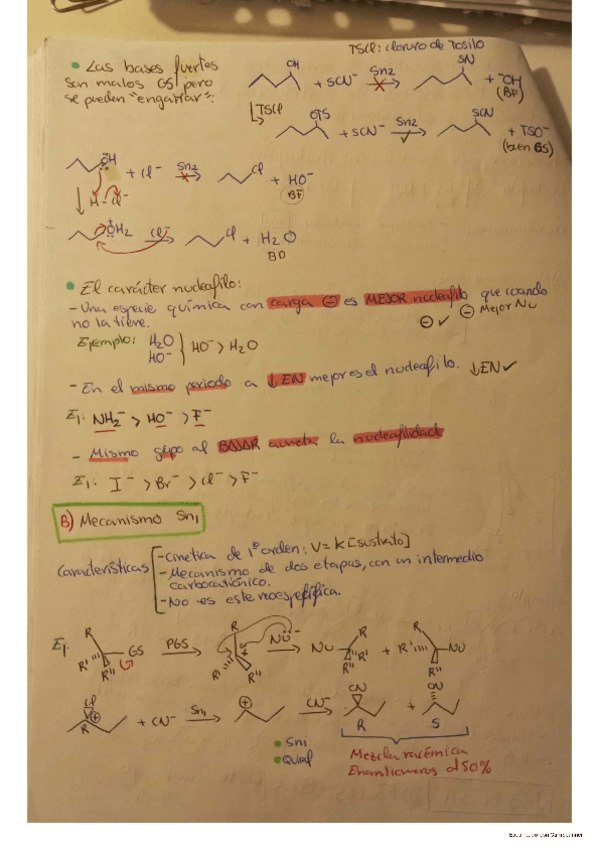 TSCl: cloruro de Tosilo
• Las bases fuertes
son malos GS pero
se pueden "engañar":
OH + SCN⁻ Sn2 → SN + ⁻OH
(BF)
↳ TSCl
OTS + SCN⁻ Sn2 ✓ → SCN + TSO⁻
(buen GS)
ÖH + Cl⁻ Sn2 → Cl + HO⁻
BF
↓ H-Cl
ÖH₂ Cl⁻ → Cl + H₂O
BD
• El carácter nucleofilo:
- Una especie química con carga ⊖ es MEJOR nucleofilo que cuando
no la tiene.
⊖ ✓ ⊖ Mejor Nu
Ejemplo: H₂O
HO⁻ } HO⁻ > H₂O
- En el mismo periodo a ↓EN mejor es el nucleofilo. ↓EN ✓
Ej: NH₂⁻ > HO⁻ > F⁻
- Mismo grupo al BAJAR aumenta la nucleofilidad
Ej: I⁻ > Br⁻ > Cl⁻ > F⁻
B) Mecanismo Sn1
Características
- Cinetica de 1º orden: V = K [sustrato]
- Mecanismo de dos etapas, con un intermedio
carbocationico.
- No es estereoespecífica.
Ej: R R' R'' R''' GS PGS → R R' R'' + Nu⁻ → Nu R R' R'' + R''' R R'' Nu
Cl R + CN⁻ Sn1 → ⊕ CN⁻ → CN R + CN S
• Sn1
• Quiral
Mezcla racémica
Enantiomeros al 50%